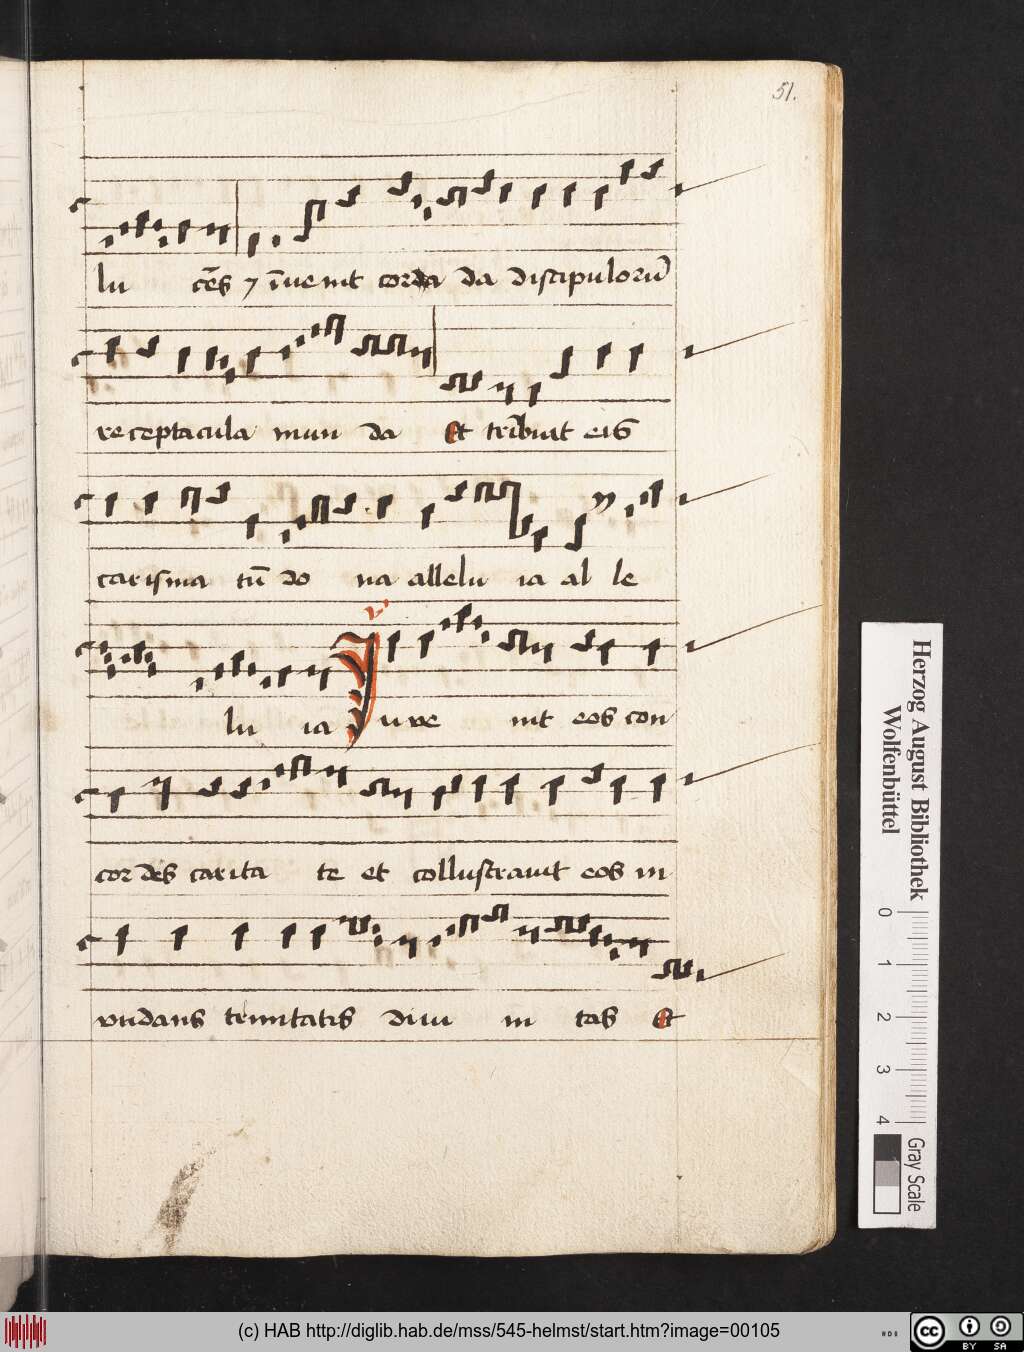 51.
lu cēs ⁊ īuenit corda da discipuloru᷒
receptacula mun da Et tribuit eis
carisma tū do na allelu ia al le
lu ia v͛ Juve nit eos con
cordes carita te et collustravit eos in
undans trinitatis divi ni tas Et
Herzog August Bibliothek
Wolfenbüttel
0 1 2 3 4
Gray Scale
(c) HAB http://diglib.hab.de/mss/545-helmst/start.htm?image=00105
cc BY SA